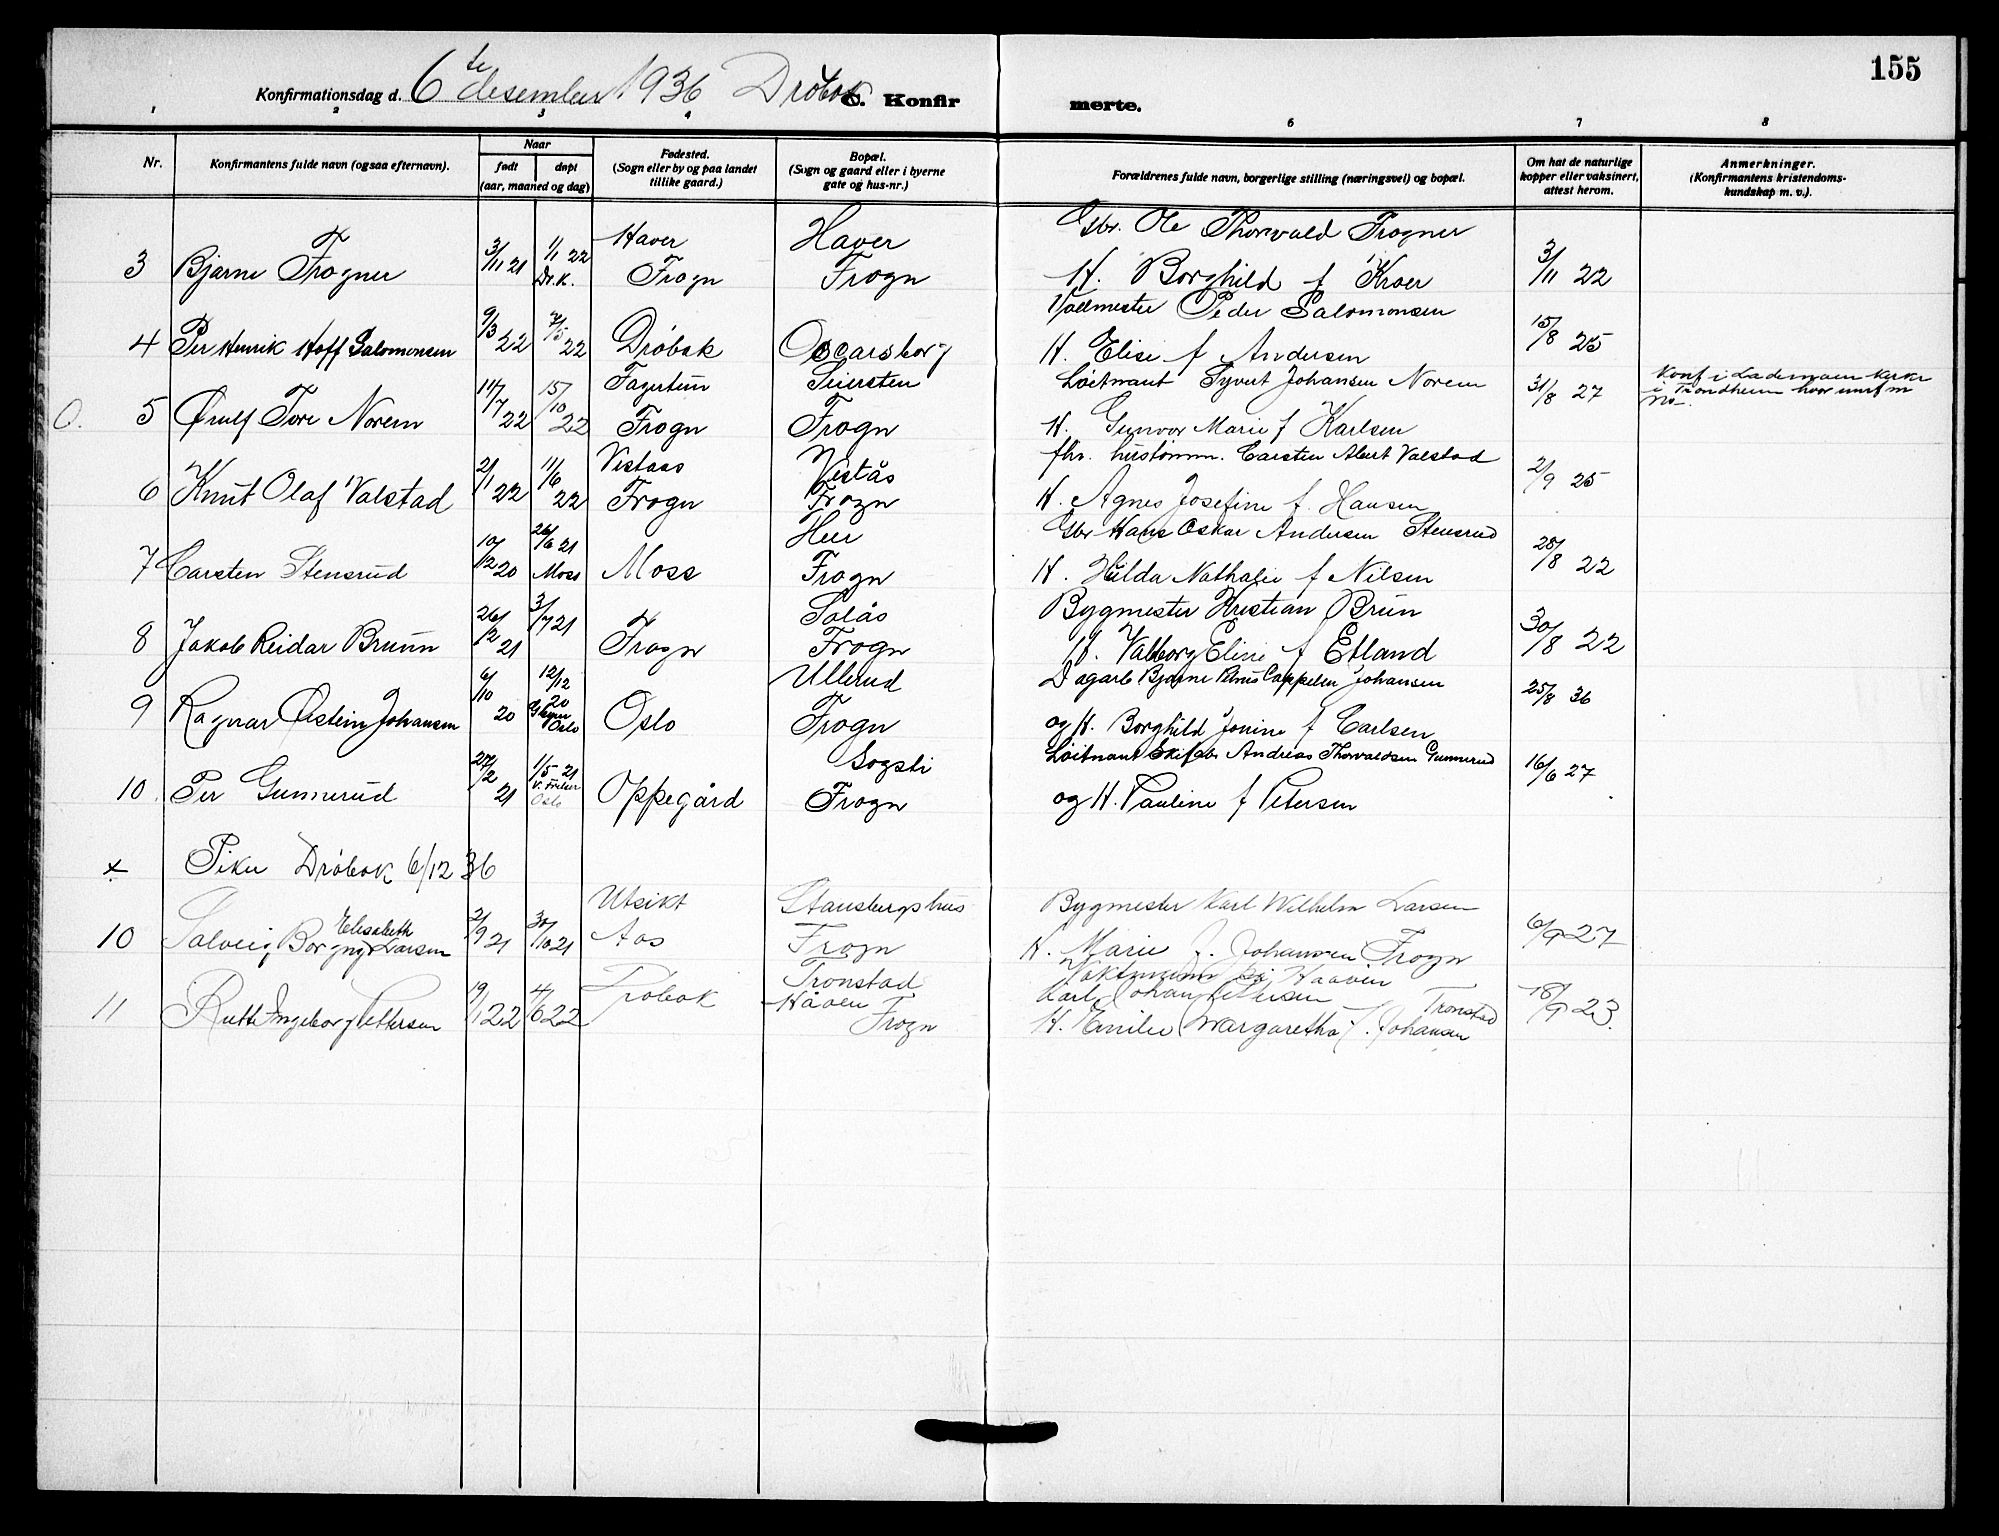 155
Konfirmationsdag d. 6te desember 1936 Drøbak C. Konfirmerte.
1 2 3 4 6 7 8
Nr. Konfirmantens fulde navn (ogsaa efternavn). Naar født døpt (aar, maaned og dag) Fødested. (Sogn eller by og paa landet tillike gaard.) Bopæl. (Sogn og gaard eller i byerne gate og hus-nr.) Forældrenes fulde navn, borgerlige stilling (næringsvei) og bopæl. Om hat de naturlige kopper eller vaksinert, attest herom. Anmerkninger. (Konfirmantens kristendoms-kundskap m. v.).
Haver Haver Gbr. Ole Thorvald Frogner
3 Bjarne Frogner 3/11 21 1/1 22 Dr.k. Frogn Frogn H. Borghild f Kroer 3/11 22
Peder Salomonsen
4 Per Henrik Hoff Salomonsen 9/3 22 7/5 22 Drøbak Oscarsborg H. Elise f Andersen 15/8 25
Fagertun Seiersten Løitnant Syvert Johansen Norem Konf i Lademoen kirke
O. 5 Ørnulf Tore Norem 11/7 22 15/10 22 Frogn Frogn H. Gunvor Marie f Karlsen 31/8 27 i Trondheim hvor
Vestaas Vestås fhv. Carsten Albert Valstad
6 Knut Olaf Valstad 2/1 22 11/6 22 Frogn Frogn H. Agnes Josefine f. Hansen 2/9 25
Heer Gbr Hans Oskar Andersen Stensrud
7 Carsten Stensrud 10/12 20 26/6 21 Moss Moss Frogn H. Hilda Nathalie f Nilsen 28/8 22
Solås Bygmester Kristian Bruun
8 Jakob Reidar Bruun 26/2 21 3/7 21 Frogn Frogn H. Valborg Eline f Etland 30/8 22
Ullerud Dagarb Bjarne Cappelen Johansen
9 Ragnar Østein Johansen 6/10 20 12/12 20 Oslo Oslo Frogn og H. Borghild Jonine f Carlsen 25/8 36
Sogsti Løitnant Andreas Thorvaldsen Gunnerud
10. Per Gunnerud 27/2 21 1/5 21 V. Frikir Oslo Oppegård Frogn og H. Pauline f Petersen 16/6 27
x Piker Drøbak 6/12 36
Utsikt Stausbergshus Bygmester Karl Wilhelm Larsen
10 Solveig Borgny Elisabeth Larsen 2/9 21 30/10 21 Aas Frogn H. Marie f. Johansen Frogn 6/9 27
Tronstad Vaktmann
11 Ruth Ingeborg Pettersen 19/1 22 4/6 22 Drøbak Håven Frogn Karl Johan Pettersen Tronstad 18/9 23.
H. Emilie Margaretha f. Johansen